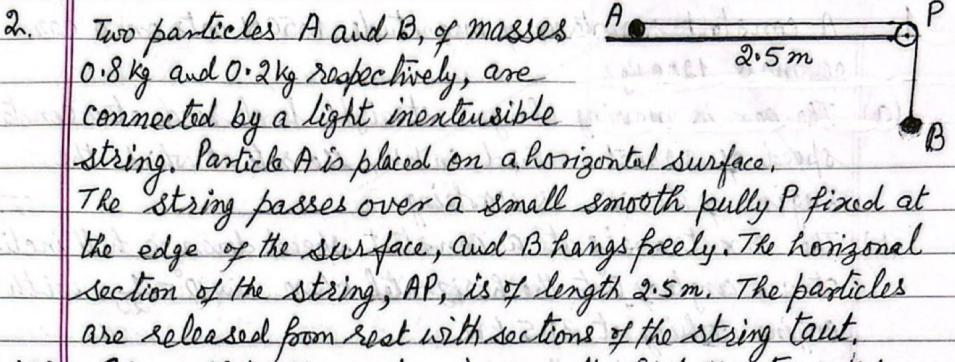 2. Two particles A and B, of masses A P
0.8 kg and 0.2 kg respectively, are 2.5 m
connected by a light inextensible B
string. Particle A is placed on a horizontal surface.
The string passes over a small smooth pully P fixed at
the edge of the surface, and B hangs freely. The horizonal
section of the string, AP, is of length 2.5 m. The particles
are released from rest with sections of the string taut.